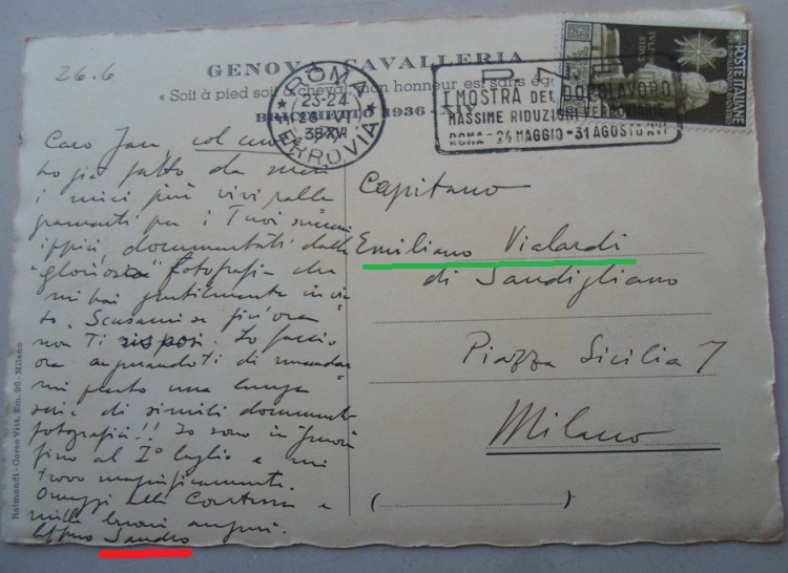 26.6
GENOVA CAVALLERIA
« Soit à pied soit à cheval, mon honneur est sans ég
1936 - XIV
ROMA
23-24
26 VI
38 XVI
FERROVIA
P.N.F.
I MOSTRA DEL DOPOLAVORO
MASSIME RIDUZIONI FERROVIARIE
ROMA - 24 MAGGIO - 31 AGOSTO XVI
POSTE ITALIANE
Caro
ho già fatto da
i miei più vivi ralle
gramenti per i Tuoi successi
ippici, documentati dalla
"gloriosa" fotografia che
mi hai gentilmente invia
to. Scusami se fin'ora
non Ti risposi. Lo faccio
ora augurandoti di mandar
mi presto una lunga
serie di simili documenti
fotografici!! Io sono in
fino al I° luglio e mi
trovo magnificamente.
Omaggi alla Contessa e
mille buoni auguri.
Sandro
Capitano
Emiliano Vialardi
di Sandigliano
Piazza Sicilia 7
Milano
( )
Raimondi - Corso Vitt. Em. 36 - Milano